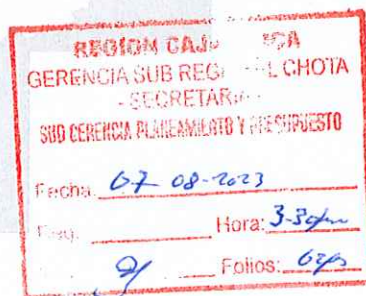 REGION CAJ
GERENCIA SUB REGI L CHOTA
- SECRETAR
SUB GERENCIA PLANEAMIENTO Y PRESUPUESTO
Fecha: 07-08-2023
Hora: 3-30pm
Folios: